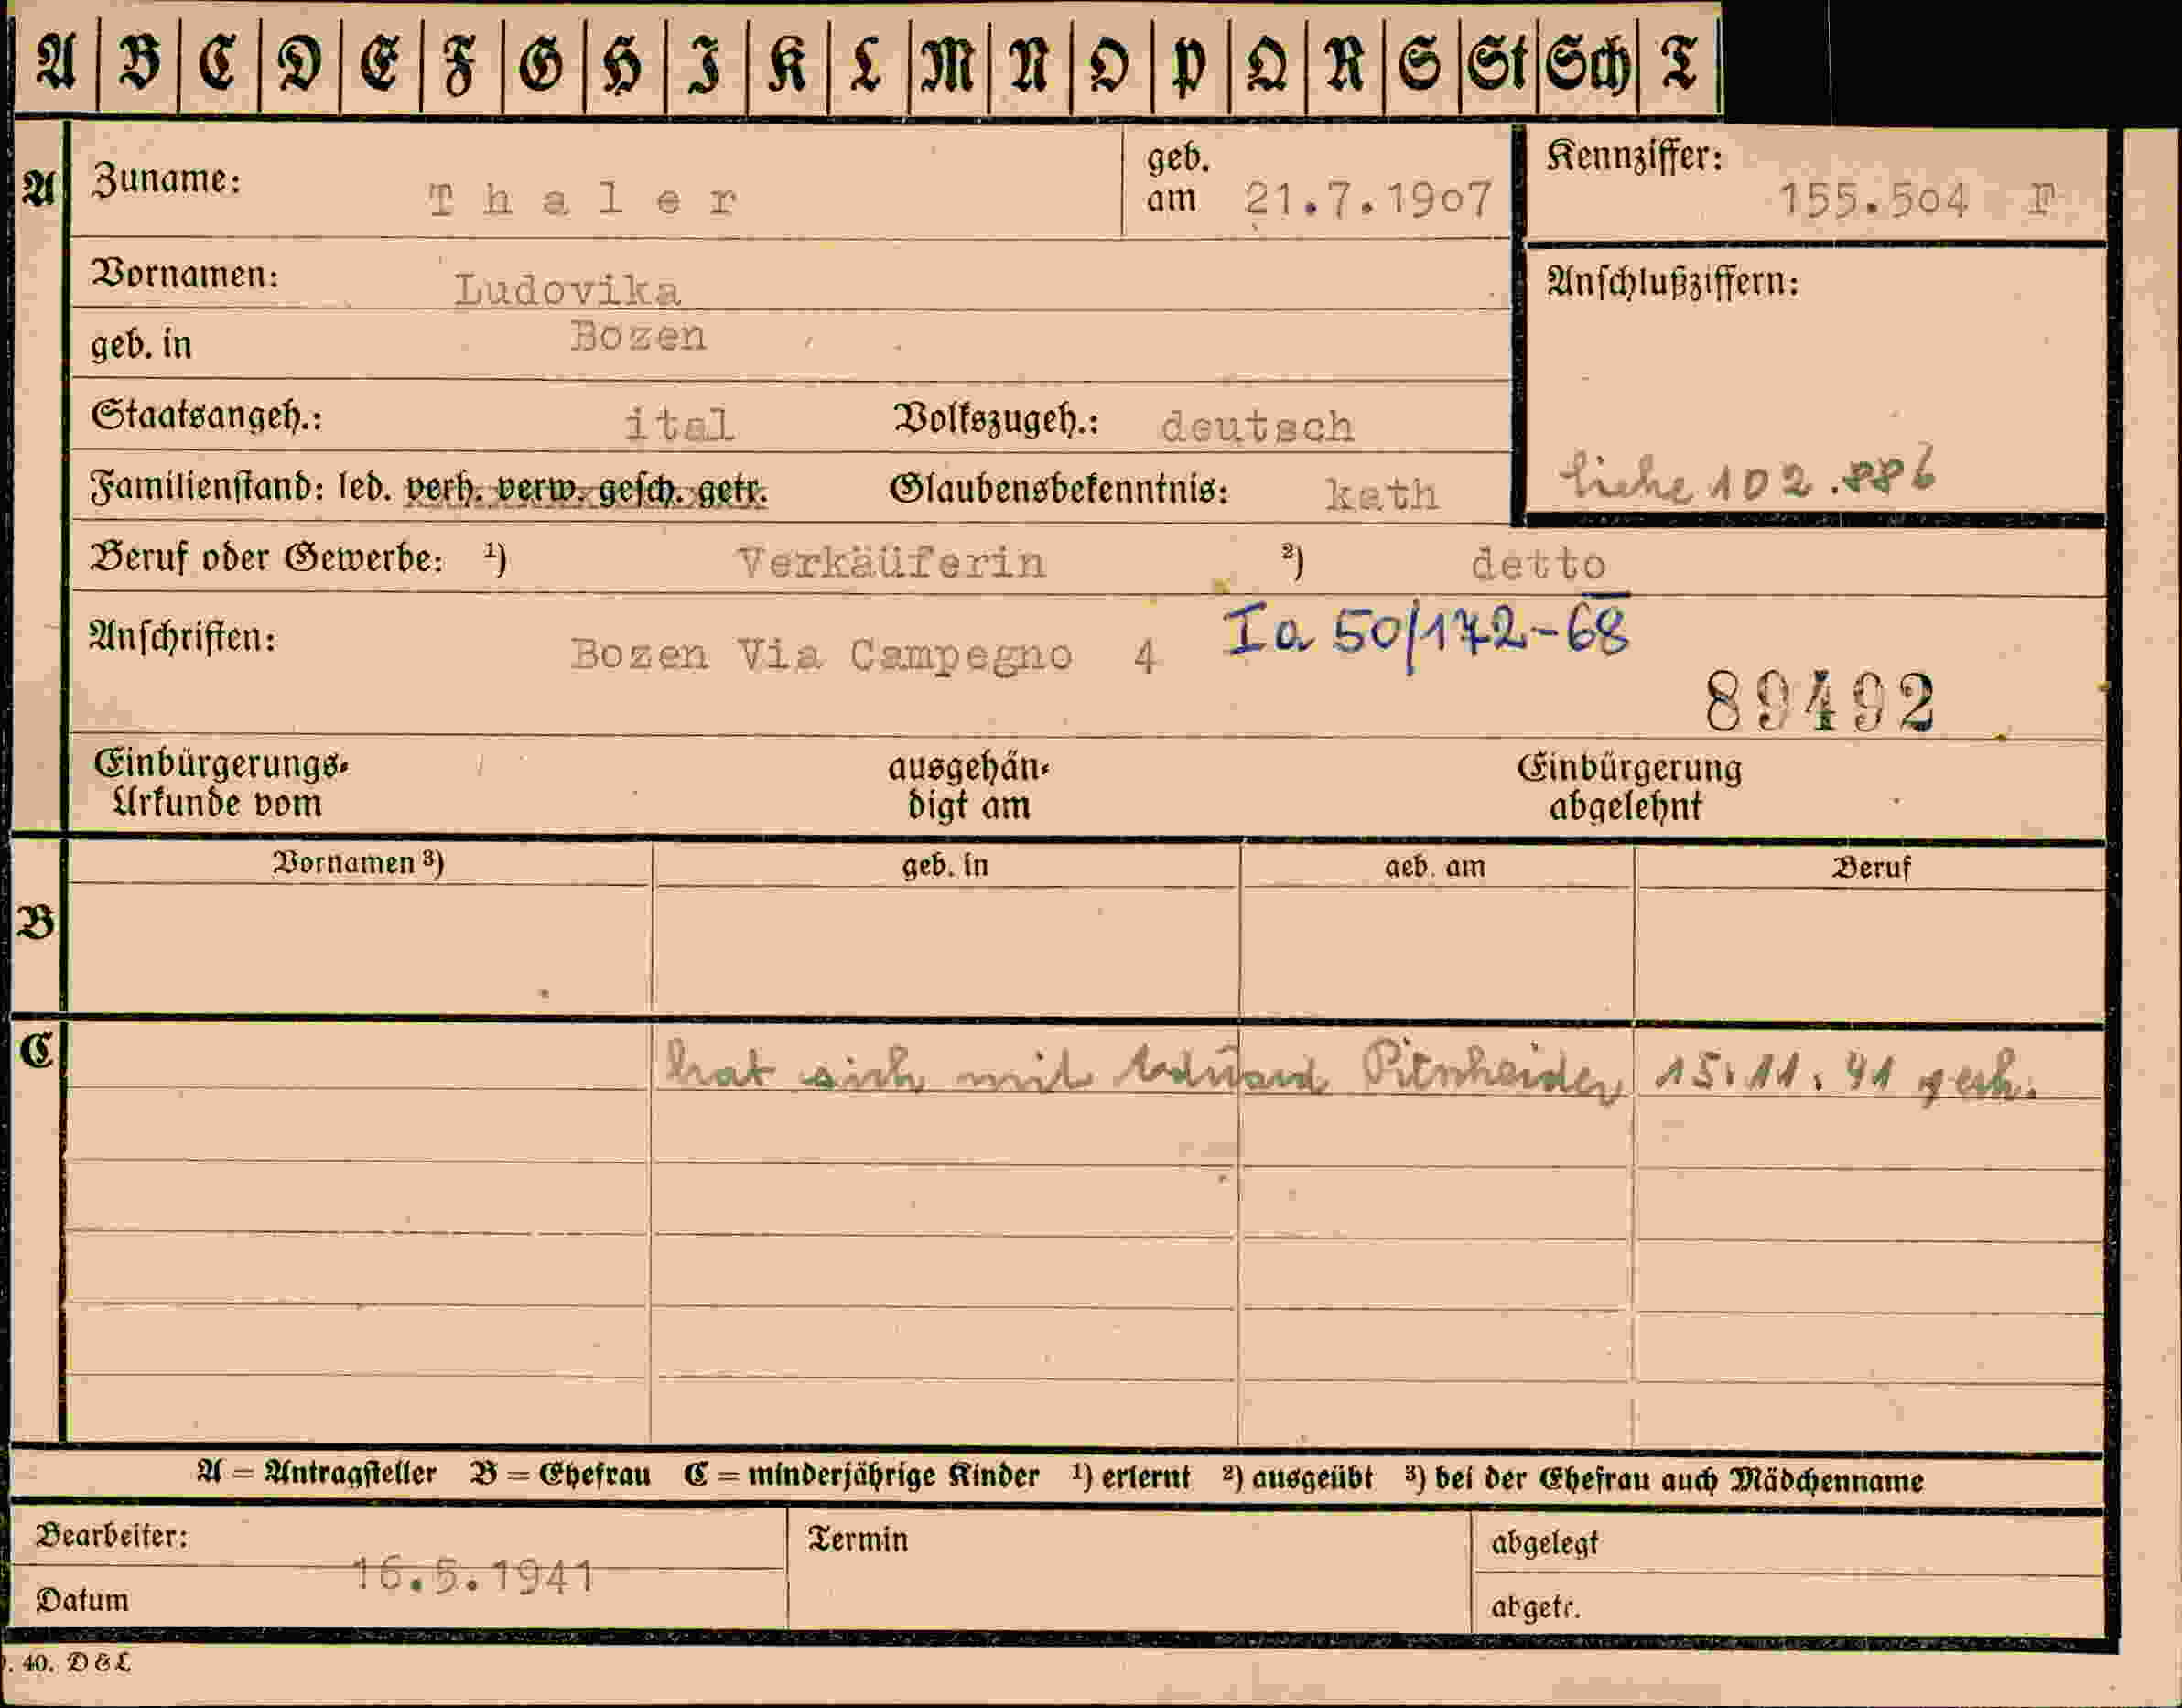 A B C D E F G H I K L M N O P Q R S St Sch T
A Zuname: Thaler geb. am 21.7.1907 Kennziffer: 155.504 F
Vornamen: Ludovika Anschlußziffern:
geb. in Bozen
Staatsangeh.: ital Volkszugeh.: deutsch
siehe 102.886
Familienstand: led. verh. verw. gesch. getr. Glaubensbekenntnis: kath
Beruf oder Gewerbe: ¹) Verkäuferin ²) detto
Anschriften: Bozen Via Campegno 4 Ia 50/172-68
89492
Einbürgerungs- ausgehän- Einbürgerung
Urkunde vom digt am abgelehnt
Vornamen ³) geb. in geb. am Beruf
B
C hat sich mit Eduard Pitscheider 15.11.41 verh.
A = Antragsteller B = Ehefrau C = minderjährige Kinder ¹) erlernt ²) ausgeübt ³) bei der Ehefrau auch Mädchenname
Bearbeiter: Termin abgelegt
16.5.1941
Datum abgetr.
. 40. D & L